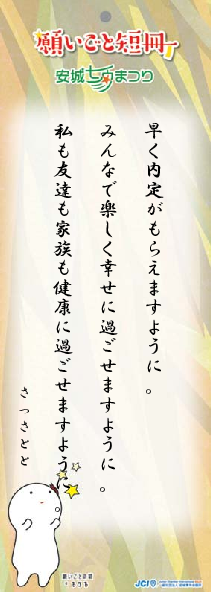 願いごと短冊
安城七夕まつり
早く内定がもらえますように。
みんなで楽しく幸せに過ごせますように。
私も友達も家族も健康に過ごせますように
さっさとと
願いごと短冊
JCI